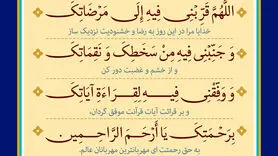 اللّهُمَّ قَرِّبْنی فیهِ إِلَی مَرْضَاتِکَ
خدایا مرا در این روز به رضا و خشنودیت نزدیک ساز
وَ جَنِّبْنِی فیهِ مِنْ سَخَطِکَ وَ نَقِمَاتِکَ
و از خشم و غضبت دور کن
وَ وَفِّقْنی فیـهِ لِقِـرَاءَةِ آیَاتِـکَ
و بر قرائت آیات قرآنت موفق گردان،
بِرَحْمَتِکَ یَا أَرْحَمَ الرَّاحِمِـینَ
به حق رحمتت ای مهربانترین مهربانان عالم.